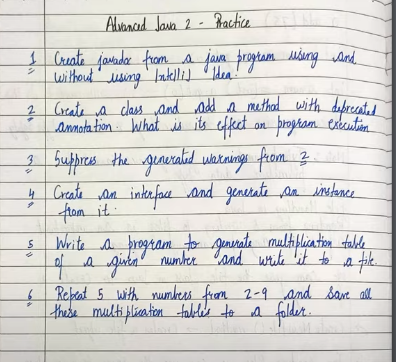 Advanced Java 2 - Practice
1 Create javadoc from a java program using and
without using IntelliJ Idea.
2 Create a class and add a method with deprecated
annotation. What is its effect on program execution
3 Suppress the generated warnings from 2
4 Create an interface and generate an instance
from it.
5 Write a program to generate multiplication table
of a given number and write it to a file.
6 Repeat 5 with numbers from 2-9 and save all
these multiplication tables to a folder.